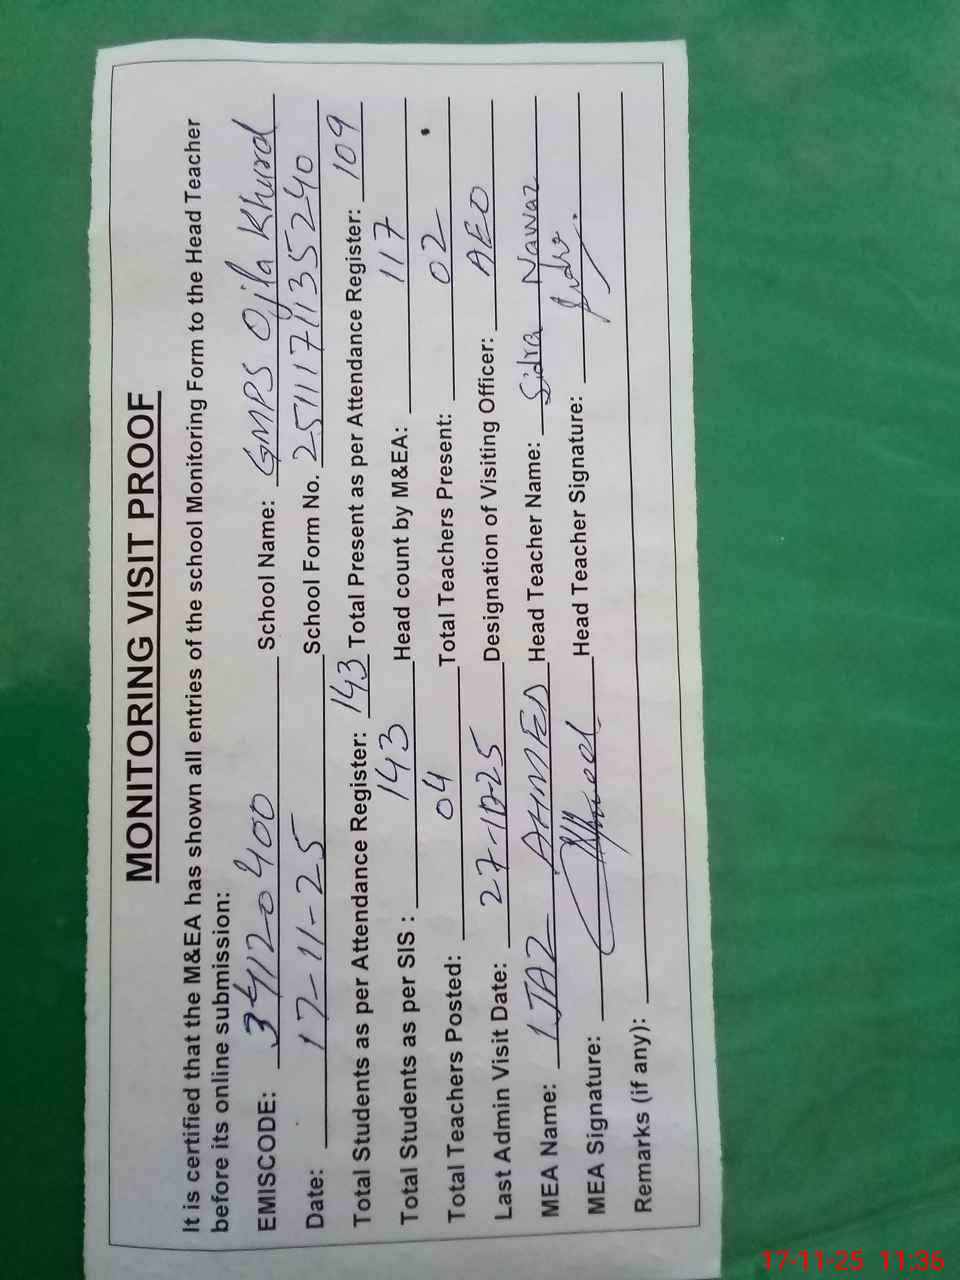 MONITORING VISIT PROOF
It is certified that the M&EA has shown all entries of the school Monitoring Form to the Head Teacher
before its online submission:
EMISCODE: 34120400 School Name: GMPS Ojla Khurd
Date: 17-11-25 School Form No. 2511171135240
Total Students as per Attendance Register: 143 Total Present as per Attendance Register: 109
Total Students as per SIS : 143 Head count by M&EA: 117
Total Teachers Posted: 04 Total Teachers Present: 02
Last Admin Visit Date: 27-10-25 Designation of Visiting Officer: AEO
MEA Name: IJAZ AHMED Head Teacher Name: Sidra Nawaz
MEA Signature: Head Teacher Signature: Sidra
Remarks (if any):
17-11-25 11:36